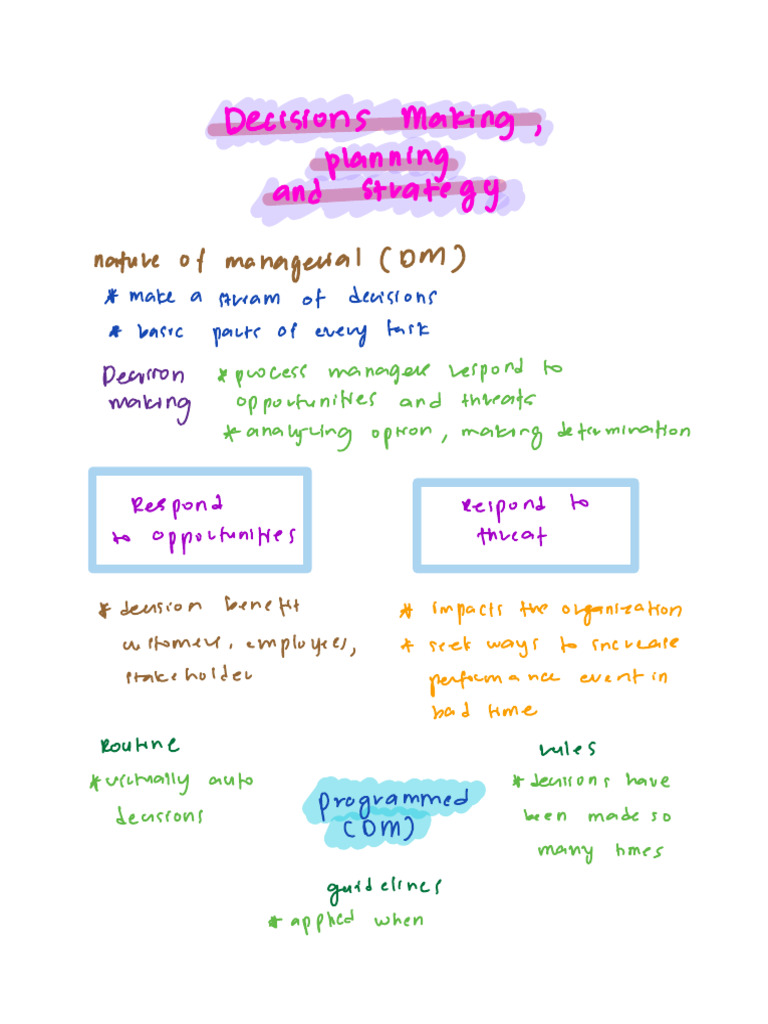 Decisions Making,
planning
and strategy
nature of managerial (DM)
* make a stream of decisions
* basic parts of every task
Decision
making
* process managers respond to
opportunities and threats
* analyzing option, making determination
Respond
to opportunities
Respond to
threat
* decision benefit
customers, employees,
stakeholder
* impacts the organization
* seek ways to increase
performance event in
bad time
Routine
* virtually auto
decisions
programmed
(DM)
rules
* decisions have
been made so
many times
guidelines
* applied when